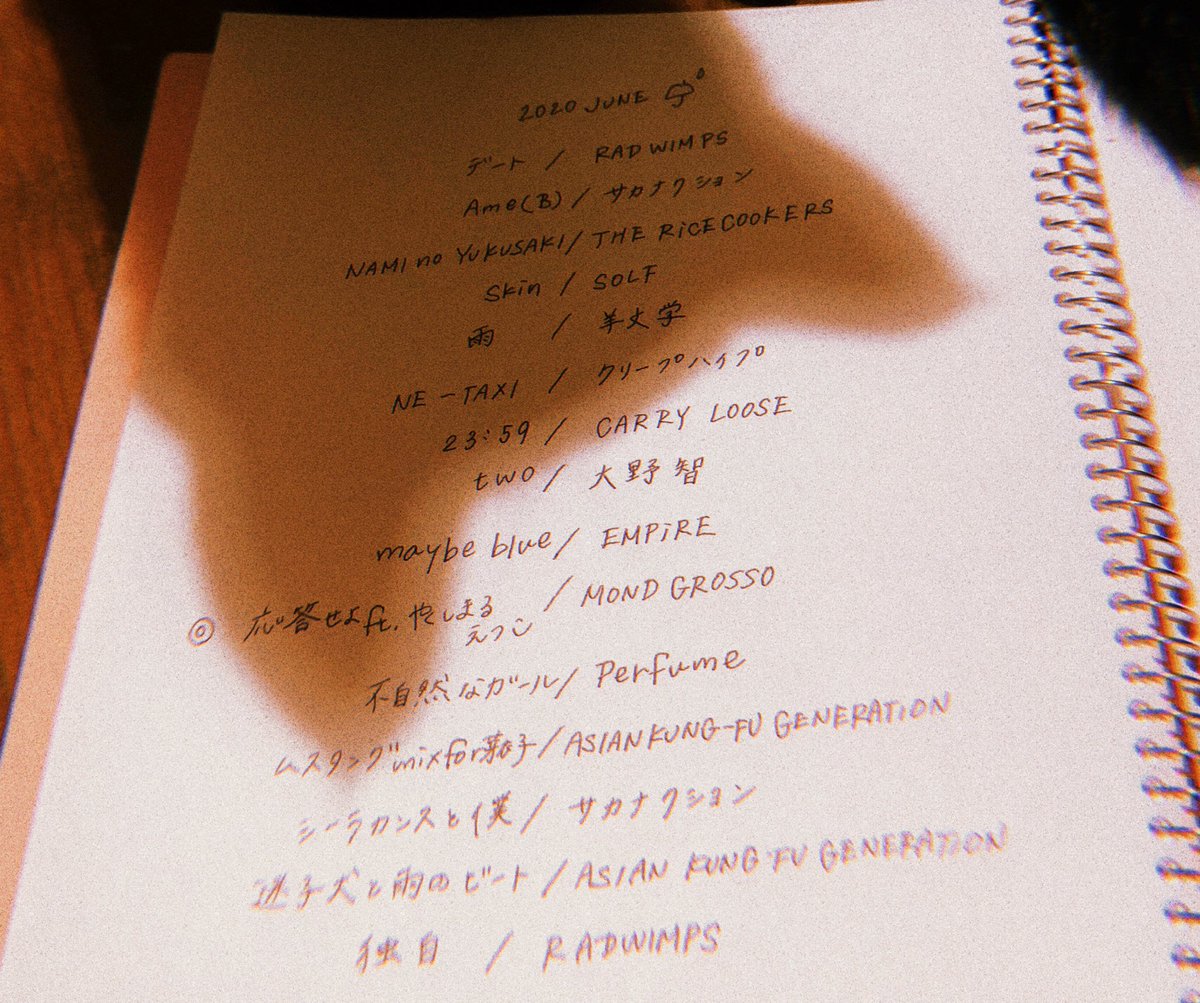 2020 JUNE
デート / RADWIMPS
Ame(B) / サカナクション
NAMI no YUKUSAKI / THE RiCECOOKERS
Skin / SOLF
雨 / 羊文学
NE-TAXI / クリープハイプ
23:59 / CARRY LOOSE
two / 大野智
maybe blue / EMPiRE
◎ 応答せよ ft. やくしまるえつこ / MOND GROSSO
不自然なガール / Perfume
ムスタング mix for 芽衣子 / ASIAN KUNG-FU GENERATION
シーラカンスと僕 / サカナクション
迷子犬と雨のビート / ASIAN KUNG-FU GENERATION
独白 / RADWIMPS